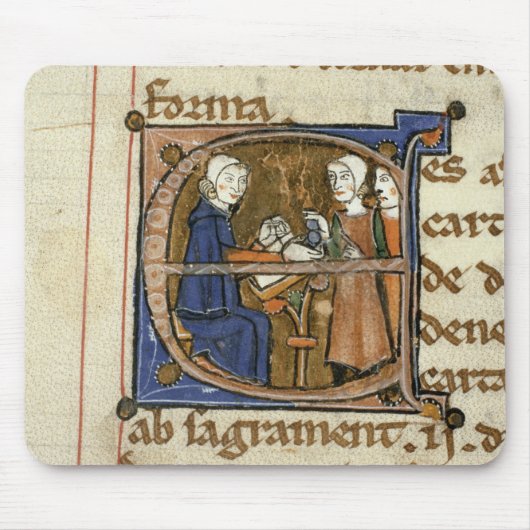 forma
es a
cart
de d
dene
carta
ab sagrament. ii. d